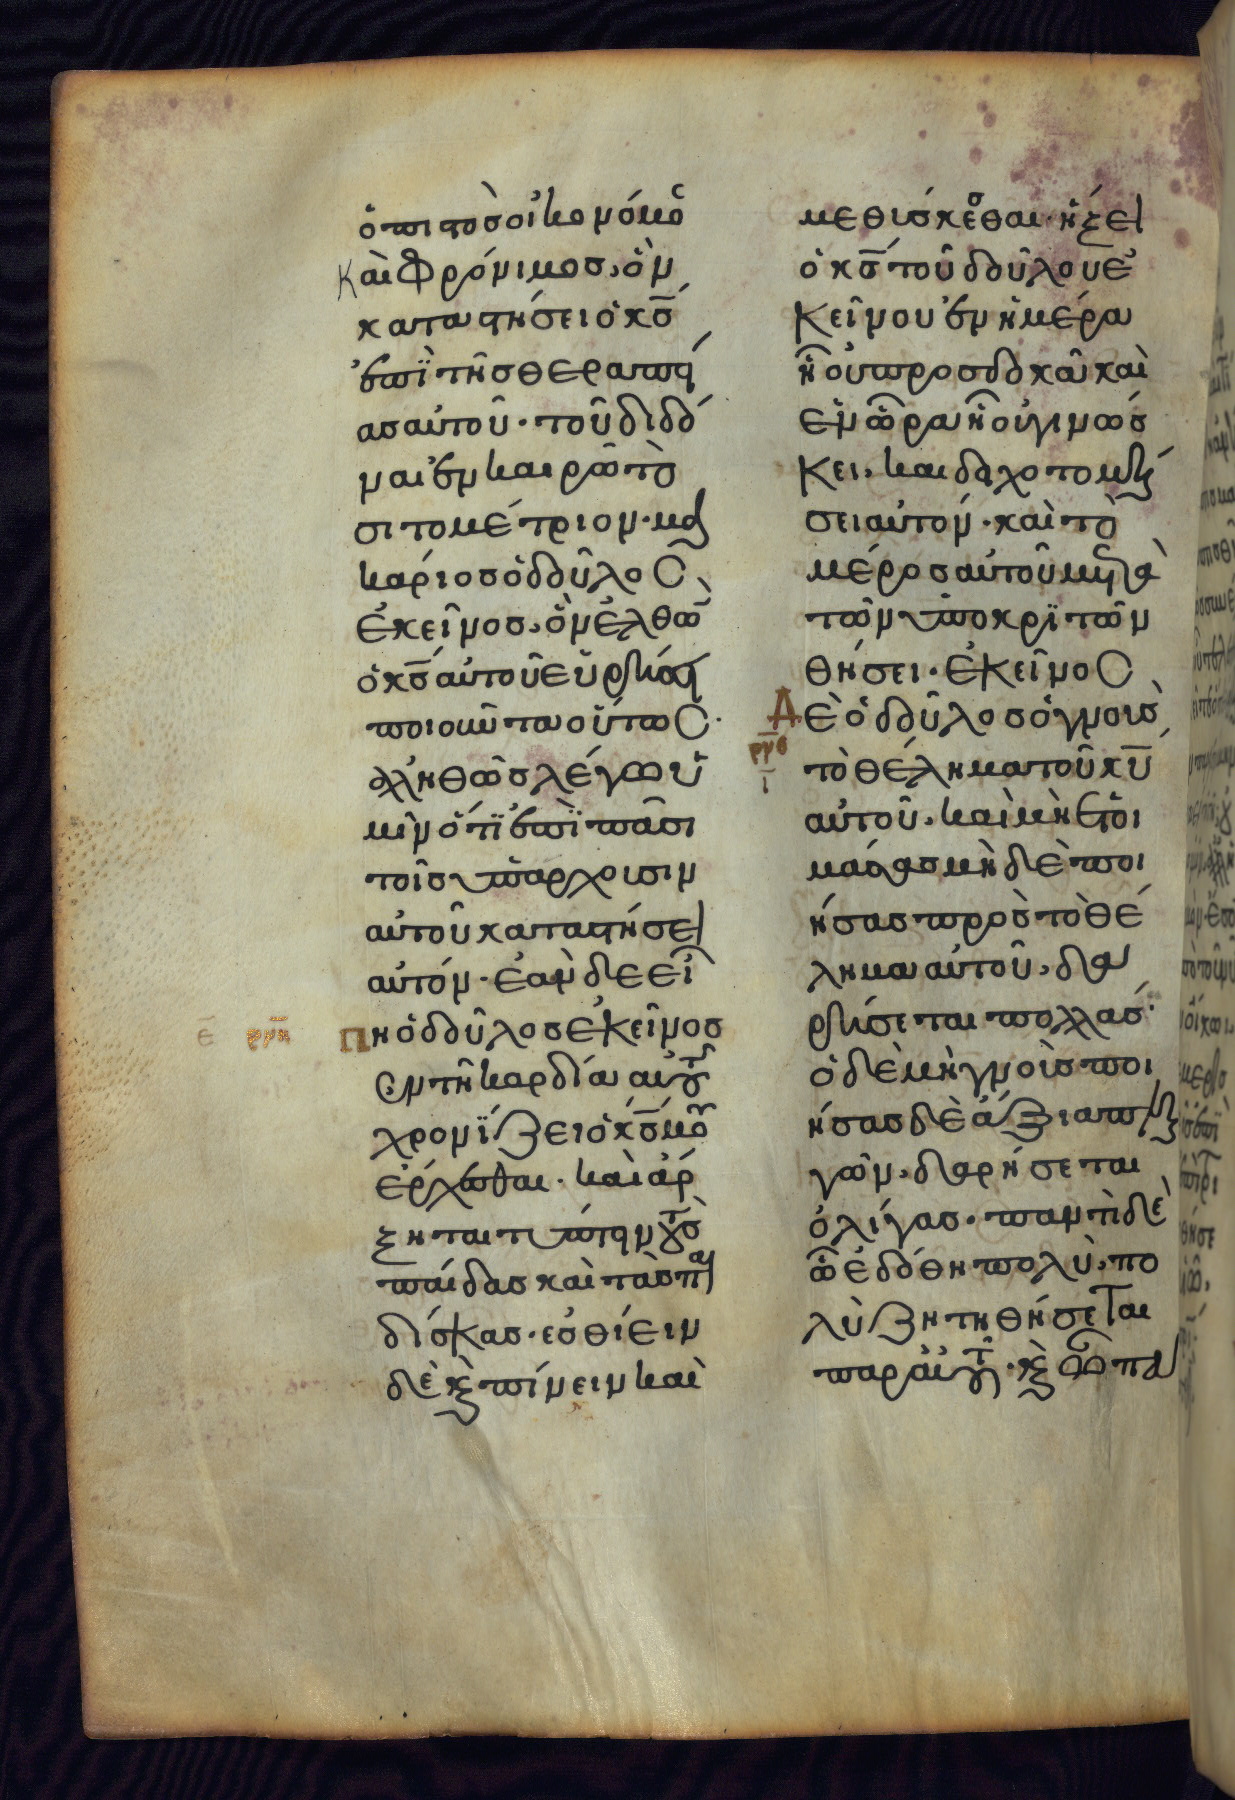 ὁ πιστὸς οἰκονόμος
καὶ φρόνιμος, ὃν
καταστήσει ὁ κ̅ς̅
ἐπῒ τῆς θεραπεί
ας αὐτοῦ· τοῦ διδό
ναι ἐν καιρῶ τὸ
σιτομέτριον· μα
κάριος ὁ δοῦλος
ἐκεῖνος, ὃν ἐλθὼν
ὁ κ̅ς̅ αὐτοῦ εὑρήσει
ποιοῦντα οὕτως·
ἀληθῶς λέγω ὑ
μῖν ὅτϊ ἐπῒ πᾶσι
τοῖς ὑπάρχουσιν
αὐτοῦ καταστήσει
αὐτόν· ἐὰν δὲ εἴ
ε̅ ρ̅ν̅η̅ πη ὁ δοῦλος ἐκεῖνος
ἐν τῆ καρδία αὐτοῦ
χρονΐζει ὁ κ̅ς̅ μου
ἔρχεσθαι· καὶ ἄρ
ξηται τύπτειν τοὺς
παίδας καὶ τὰς παι
δίσκας· ἐσθίειν
δὲ κὲ πίνειν καὶ
μεθύσκεσθαι· ἥξει
ὁ κ̅ς̅ τοῦ δούλου ἐ
κείνου ἐν ἡμέρα
ἧ οὐ προσδοκᾶ καὶ
ἐν ὥρα ἧ οὐ γινώσ
κει, καὶ διχοτομή
σει αὐτόν· καὶ τὸ
μέρος αὐτοῦ μετὰ
τῶν ὑποκρϊτῶν
θήσει· ἐκεῖνος
δὲ ὁ δοῦλος ὁ γνοὺς
ρ̅ν̅θ̅ ι̅ τὸ θέλημα τοῦ κ̅υ̅
αὐτοῦ, καὶ μὴ ἑτοι
μάσας μὴ δὲ ποι
ήσας πρὸς τὸ θέ
λημα αὐτοῦ, δα
ρήσεται πολλάς·
ὁ δὲ μὴ γνοὺς ποι
ήσας δὲ ἄξια πλη
γῶν, δαρήσεται
ὀλίγας· παντὶ δὲ
ὧ ἐδόθη πολὺ, πο
λὺ ζητηθήσεται
παρ αὐτοῦ· κὲ ὧ πα